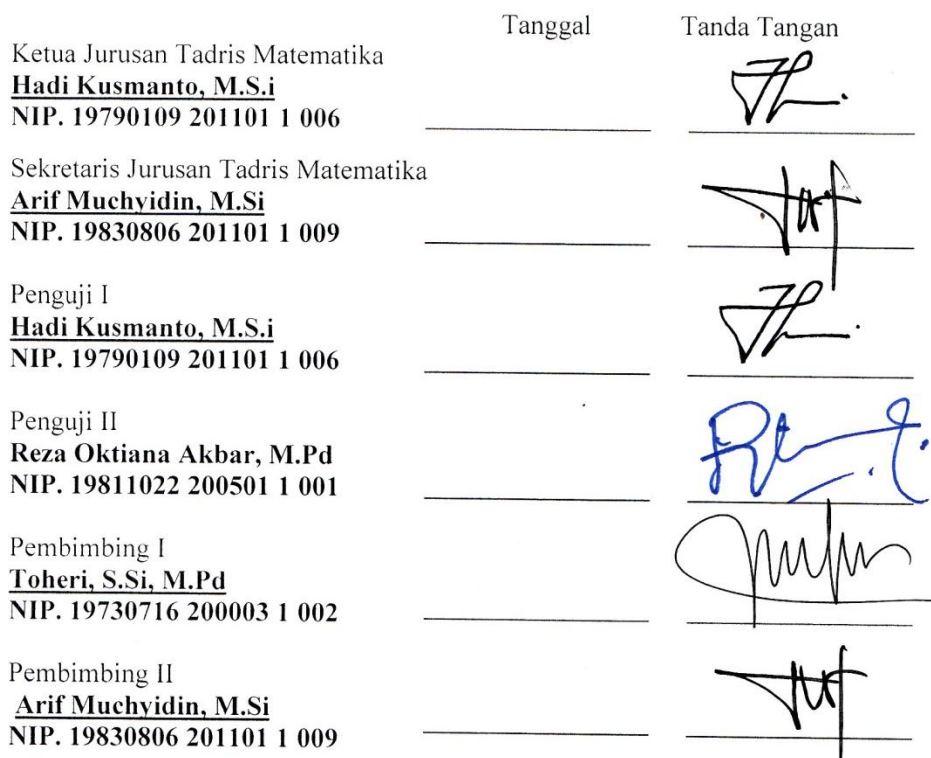 Tanggal Tanda Tangan
Ketua Jurusan Tadris Matematika
Hadi Kusmanto, M.S.i
NIP. 19790109 201101 1 006
Sekretaris Jurusan Tadris Matematika
Arif Muchyidin, M.Si
NIP. 19830806 201101 1 009
Penguji I
Hadi Kusmanto, M.S.i
NIP. 19790109 201101 1 006
Penguji II
Reza Oktiana Akbar, M.Pd
NIP. 19811022 200501 1 001
Pembimbing I
Toheri, S.Si, M.Pd
NIP. 19730716 200003 1 002
Pembimbing II
Arif Muchyidin, M.Si
NIP. 19830806 201101 1 009